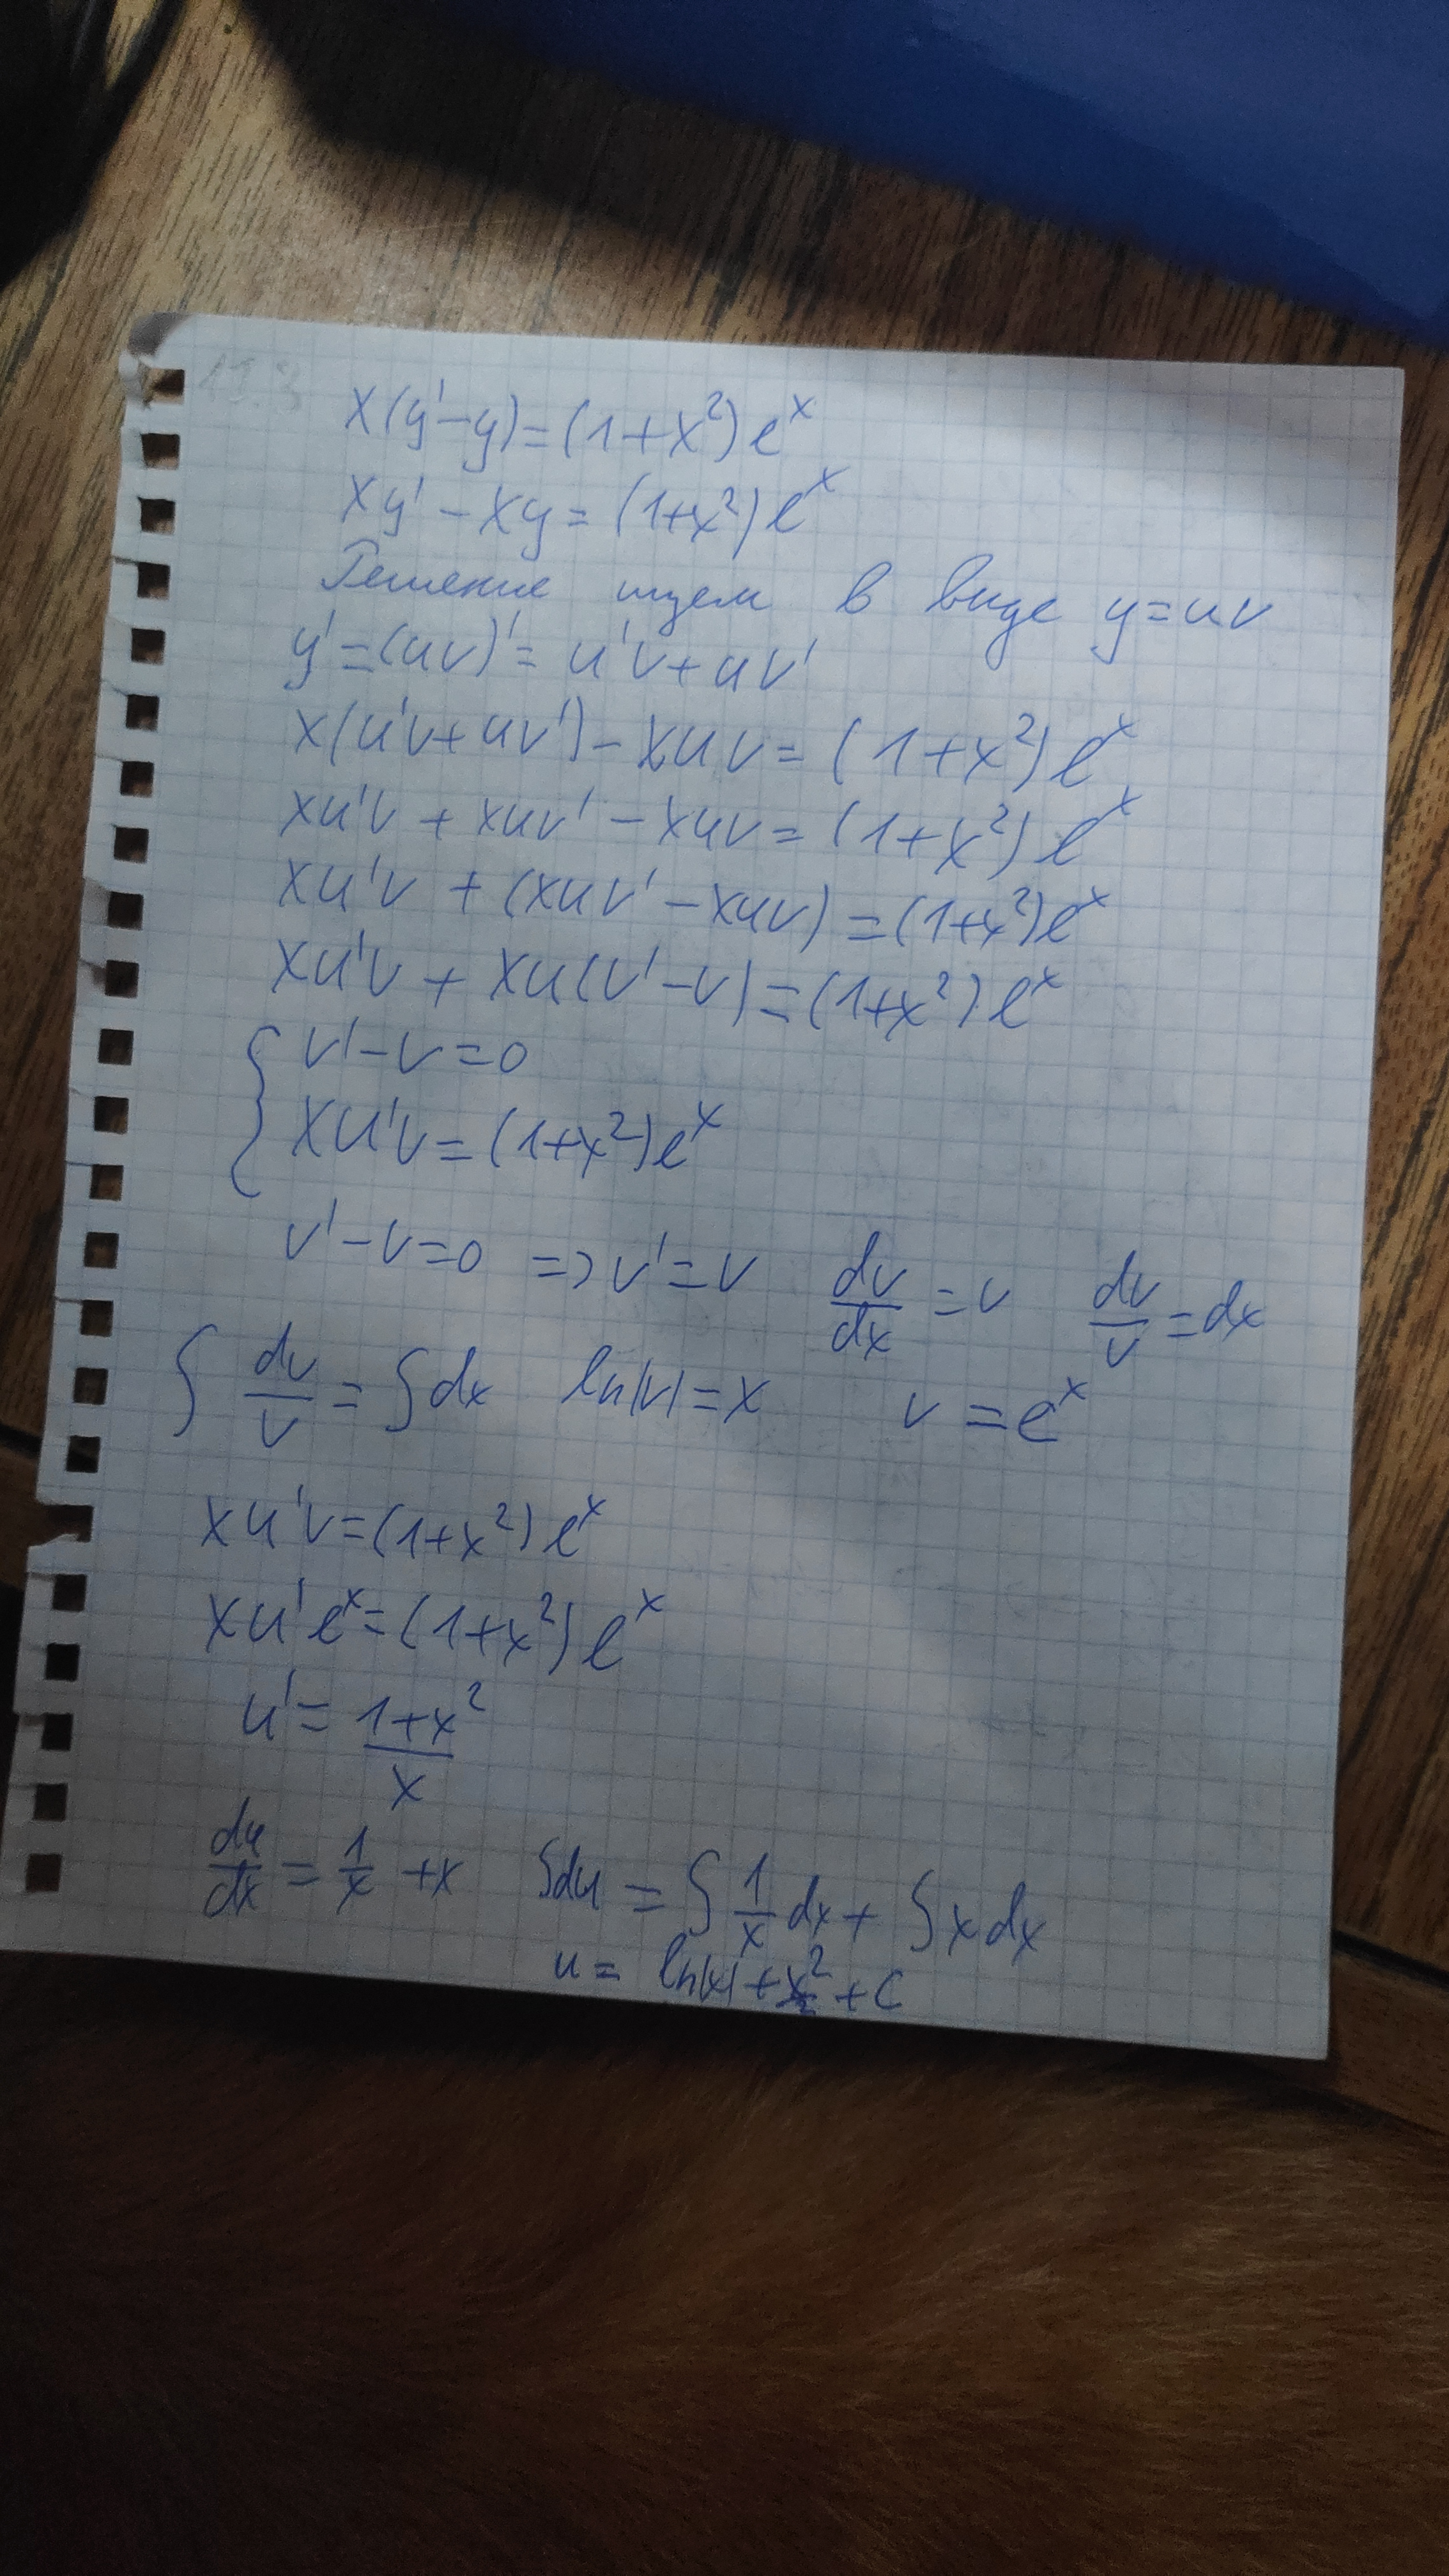 x(y'-y)=(1+x²)eˣ
xy'-xy=(1+x²)eˣ
Решение ищем в виде y=uv
y'=(uv)'=u'v+uv'
x(u'v+uv')-xuv=(1+x²)eˣ
xu'v+xuv'-xuv=(1+x²)eˣ
xu'v+(xuv'-xuv)=(1+x²)eˣ
xu'v+xu(v'-v)=(1+x²)eˣ
{ v'-v=0
xu'v=(1+x²)eˣ
v'-v=0 => v'=v dv/dx=v dv/v=dx
∫dv/v=∫dx ln|v|=x v=eˣ
xu'v=(1+x²)eˣ
xu'eˣ=(1+x²)eˣ
u'=(1+x²)/x
du/dx=1/x+x ∫du=∫1/x dx+∫x dx
u=ln|x|+x²/2+C